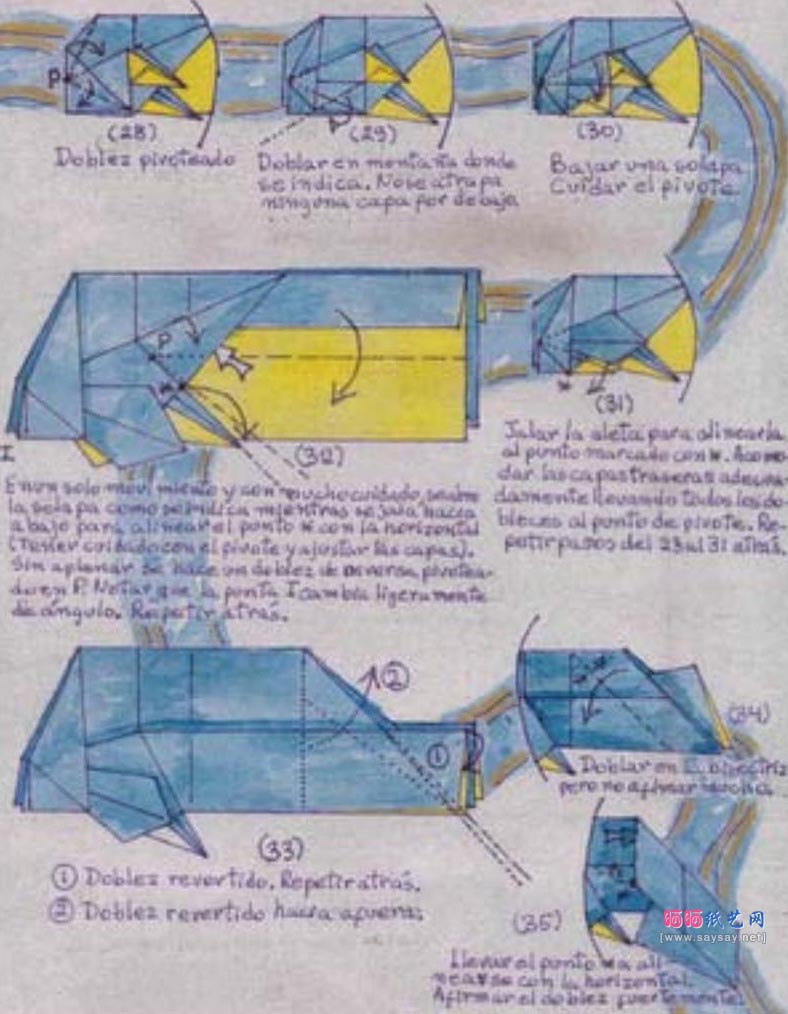 P
(28)
Doblez pivoteado
(29)
Doblar en montaña donde
se indica. No se atrapa
ninguna capa por debajo
(30)
Bajar una solapa
Cuidar el pivote
(31)
Jalar la aleta para alinearla
al punto marcado con *. Acomo-
dar las capas traseras adecua-
damente llevando todos los do-
bleces al punto de pivote. Re-
petir pasos del 23 al 31 atrás.
P
I
(32)
En un solo movimiento y con mucho cuidado, se abre
la solapa como se indica mientras se jala hacia
abajo para alinear el punto * con la horizontal
(Tener cuidado con el pivote y ajustar las capas).
Sin aplanar se hace un doblez de reversa pivotea-
do en P. Notar que la punta I cambia ligeramente
de ángulo. Repetir atrás.
②
①
(33)
① Doblez revertido. Repetir atrás.
② Doblez revertido hacia afuera.
(34)
Doblar en bisectriz
pero no afirmar
(35)
Llevar el punto * a ali-
nearse con la horizontal.
Afirmar el doblez fuertemente.
纸艺网
[www.saysay.net]